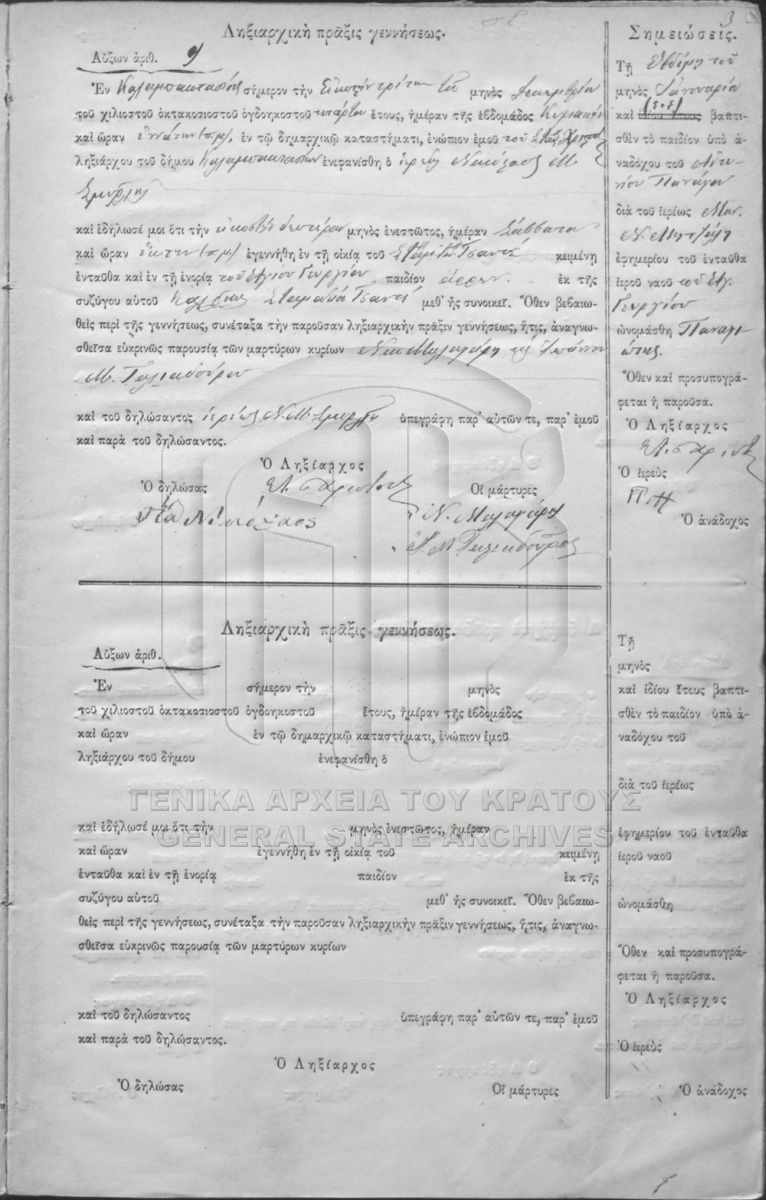 3
Ληξιαρχικὴ πρᾶξις γεννήσεως.
Αὔξων ἀριθ. 9
Ἐν σήμερον τὴν εἰκοστὴν τρίτην τοῦ μηνὸς Δεκεμβρίου
τοῦ χιλιοστοῦ ὀκτακοσιοστοῦ ὀγδοηκοστοῦ τετάρτου ἔτους, ἡμέραν τῆς ἑβδομάδος Κυριακὴν
καὶ ὥραν ἐννάτην (π.μ), ἐν τῷ δημαρχικῷ καταστήματι, ἐνώπιον ἐμοῦ τοῦ
ληξιάρχου τοῦ δήμου ἐνεφανίσθη ὁ ἱερεὺς Νικόλαος Μ.
καὶ ἐδήλωσέ μοι ὅτι τὴν εἰκοστὴν δευτέραν μηνὸς ἐνεστῶτος, ἡμέραν Σάββατον
καὶ ὥραν ἕκτην (π.μ) ἐγεννήθη ἐν τῇ οἰκίᾳ τοῦ κειμένῃ
ἐνταῦθα καὶ ἐν τῇ ἐνορίᾳ τοῦ Ἁγίου Γεωργίου παιδίον ἄρρεν. ἐκ τῆς
συζύγου αὐτοῦ μεθ' ἧς συνοικεῖ. Ὅθεν βεβαιω-
θεὶς περὶ τῆς γεννήσεως, συνέταξα τὴν παροῦσαν ληξιαρχικὴν πρᾶξιν γεννήσεως, ἥτις, ἀναγνω-
σθεῖσα εὐκρινῶς παρουσίᾳ τῶν μαρτύρων κυρίων Νικ Μαλαγάρη καὶ Ἰωάννου
Μ.
καὶ τοῦ δηλώσαντος ἱερέως Ν. Μ. ὑπεγράφη παρ' αὐτῶν τε, παρ' ἐμοῦ
καὶ παρὰ τοῦ δηλώσαντος.
Ὁ Ληξίαρχος
Ὁ δηλώσας Οἱ μάρτυρες
Νικόλαος Ν. Μαλαγάρη
Σημειώσεις.
Τῇ ἑβδόμῃ τοῦ
μηνὸς Ἰανουαρίου
(ἔ.ἔ)
καὶ βαπτι-
σθὲν τὸ παιδίον ὑπὸ ἀ-
ναδόχου τοῦ Ἀντω-
νίου Πανάγου
διὰ τοῦ ἱερέως
Ν.
ἐφημερίου τοῦ ἐνταῦθα
ἱεροῦ ναοῦ τοῦ Ἁγ.
Γεωργίου
ὠνομάσθη Παναγι-
ώτης.
Ὅθεν καὶ προσυπογρά-
φεται ἡ παροῦσα.
Ὁ Ληξίαρχος
Ὁ ἱερεὺς
Ὁ ἀνάδοχος
Ληξιαρχικὴ πρᾶξις γεννήσεως.
Αὔξων ἀριθ.
Ἐν σήμερον τὴν μηνὸς
τοῦ χιλιοστοῦ ὀκτακοσιοστοῦ ὀγδοηκοστοῦ ἔτους, ἡμέραν τῆς ἑβδομάδος
καὶ ὥραν ἐν τῷ δημαρχικῷ καταστήματι, ἐνώπιον ἐμοῦ
ληξιάρχου τοῦ δήμου ἐνεφανίσθη ὁ
ΓΕΝΙΚΑ ΑΡΧΕΙΑ ΤΟΥ ΚΡΑΤΟΥΣ
GENERAL STATE ARCHIVES
καὶ ἐδήλωσέ μοι ὅτι τὴν μηνὸς ἐνεστῶτος, ἡμέραν
καὶ ὥραν ἐγεννήθη ἐν τῇ οἰκίᾳ τοῦ κειμένῃ
ἐνταῦθα καὶ ἐν τῇ ἐνορίᾳ παιδίον ἐκ τῆς
συζύγου αὐτοῦ μεθ' ἧς συνοικεῖ. Ὅθεν βεβαιω-
θεὶς περὶ τῆς γεννήσεως, συνέταξα τὴν παροῦσαν ληξιαρχικὴν πρᾶξιν γεννήσεως, ἥτις, ἀναγνω-
σθεῖσα εὐκρινῶς παρουσίᾳ τῶν μαρτύρων κυρίων
καὶ τοῦ δηλώσαντος ὑπεγράφη παρ' αὐτῶν τε, παρ' ἐμοῦ
καὶ παρὰ τοῦ δηλώσαντος.
Ὁ Ληξίαρχος
Ὁ δηλώσας Οἱ μάρτυρες
Τῇ
μηνὸς
καὶ ἰδίου ἔτους βαπτι-
σθὲν τὸ παιδίον ὑπὸ ἀ-
ναδόχου τοῦ
διὰ τοῦ ἱερέως
ἐφημερίου τοῦ ἐνταῦθα
ἱεροῦ ναοῦ
ὠνομάσθη
Ὅθεν καὶ προσυπογρά-
φεται ἡ παροῦσα.
Ὁ Ληξίαρχος
Ὁ ἱερεὺς
Ὁ ἀνάδοχος